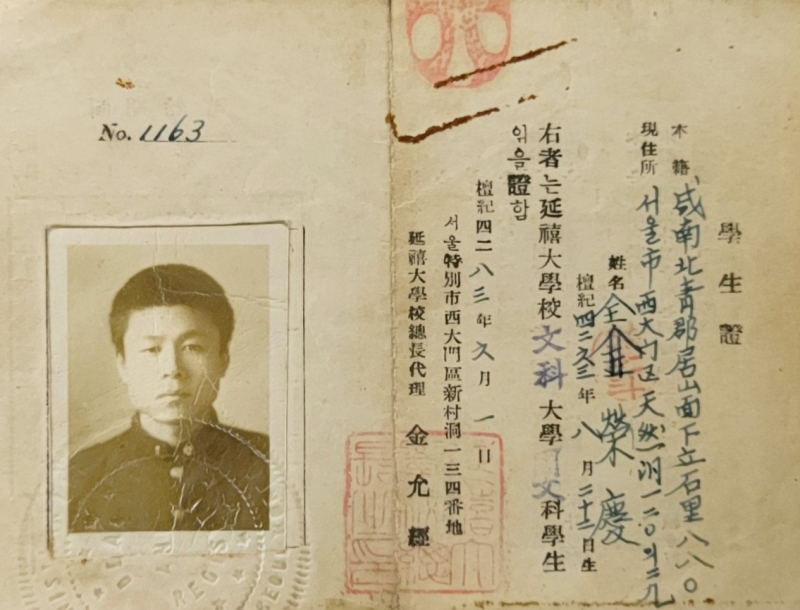 No. 1163
學生證
本籍 咸南北青郡居山面下立石里八八〇
現住所 서울市西大门区天然洞一二〇의二九
姓名 全榮慶
檀紀四二六三年八月二十二日生
右者는延禧大學校文科大學文科學生
임을證함
檀紀四二八三年九月一日
서울特別市西大門區新村洞一三四番地
延禧大學校總長代理 金允經